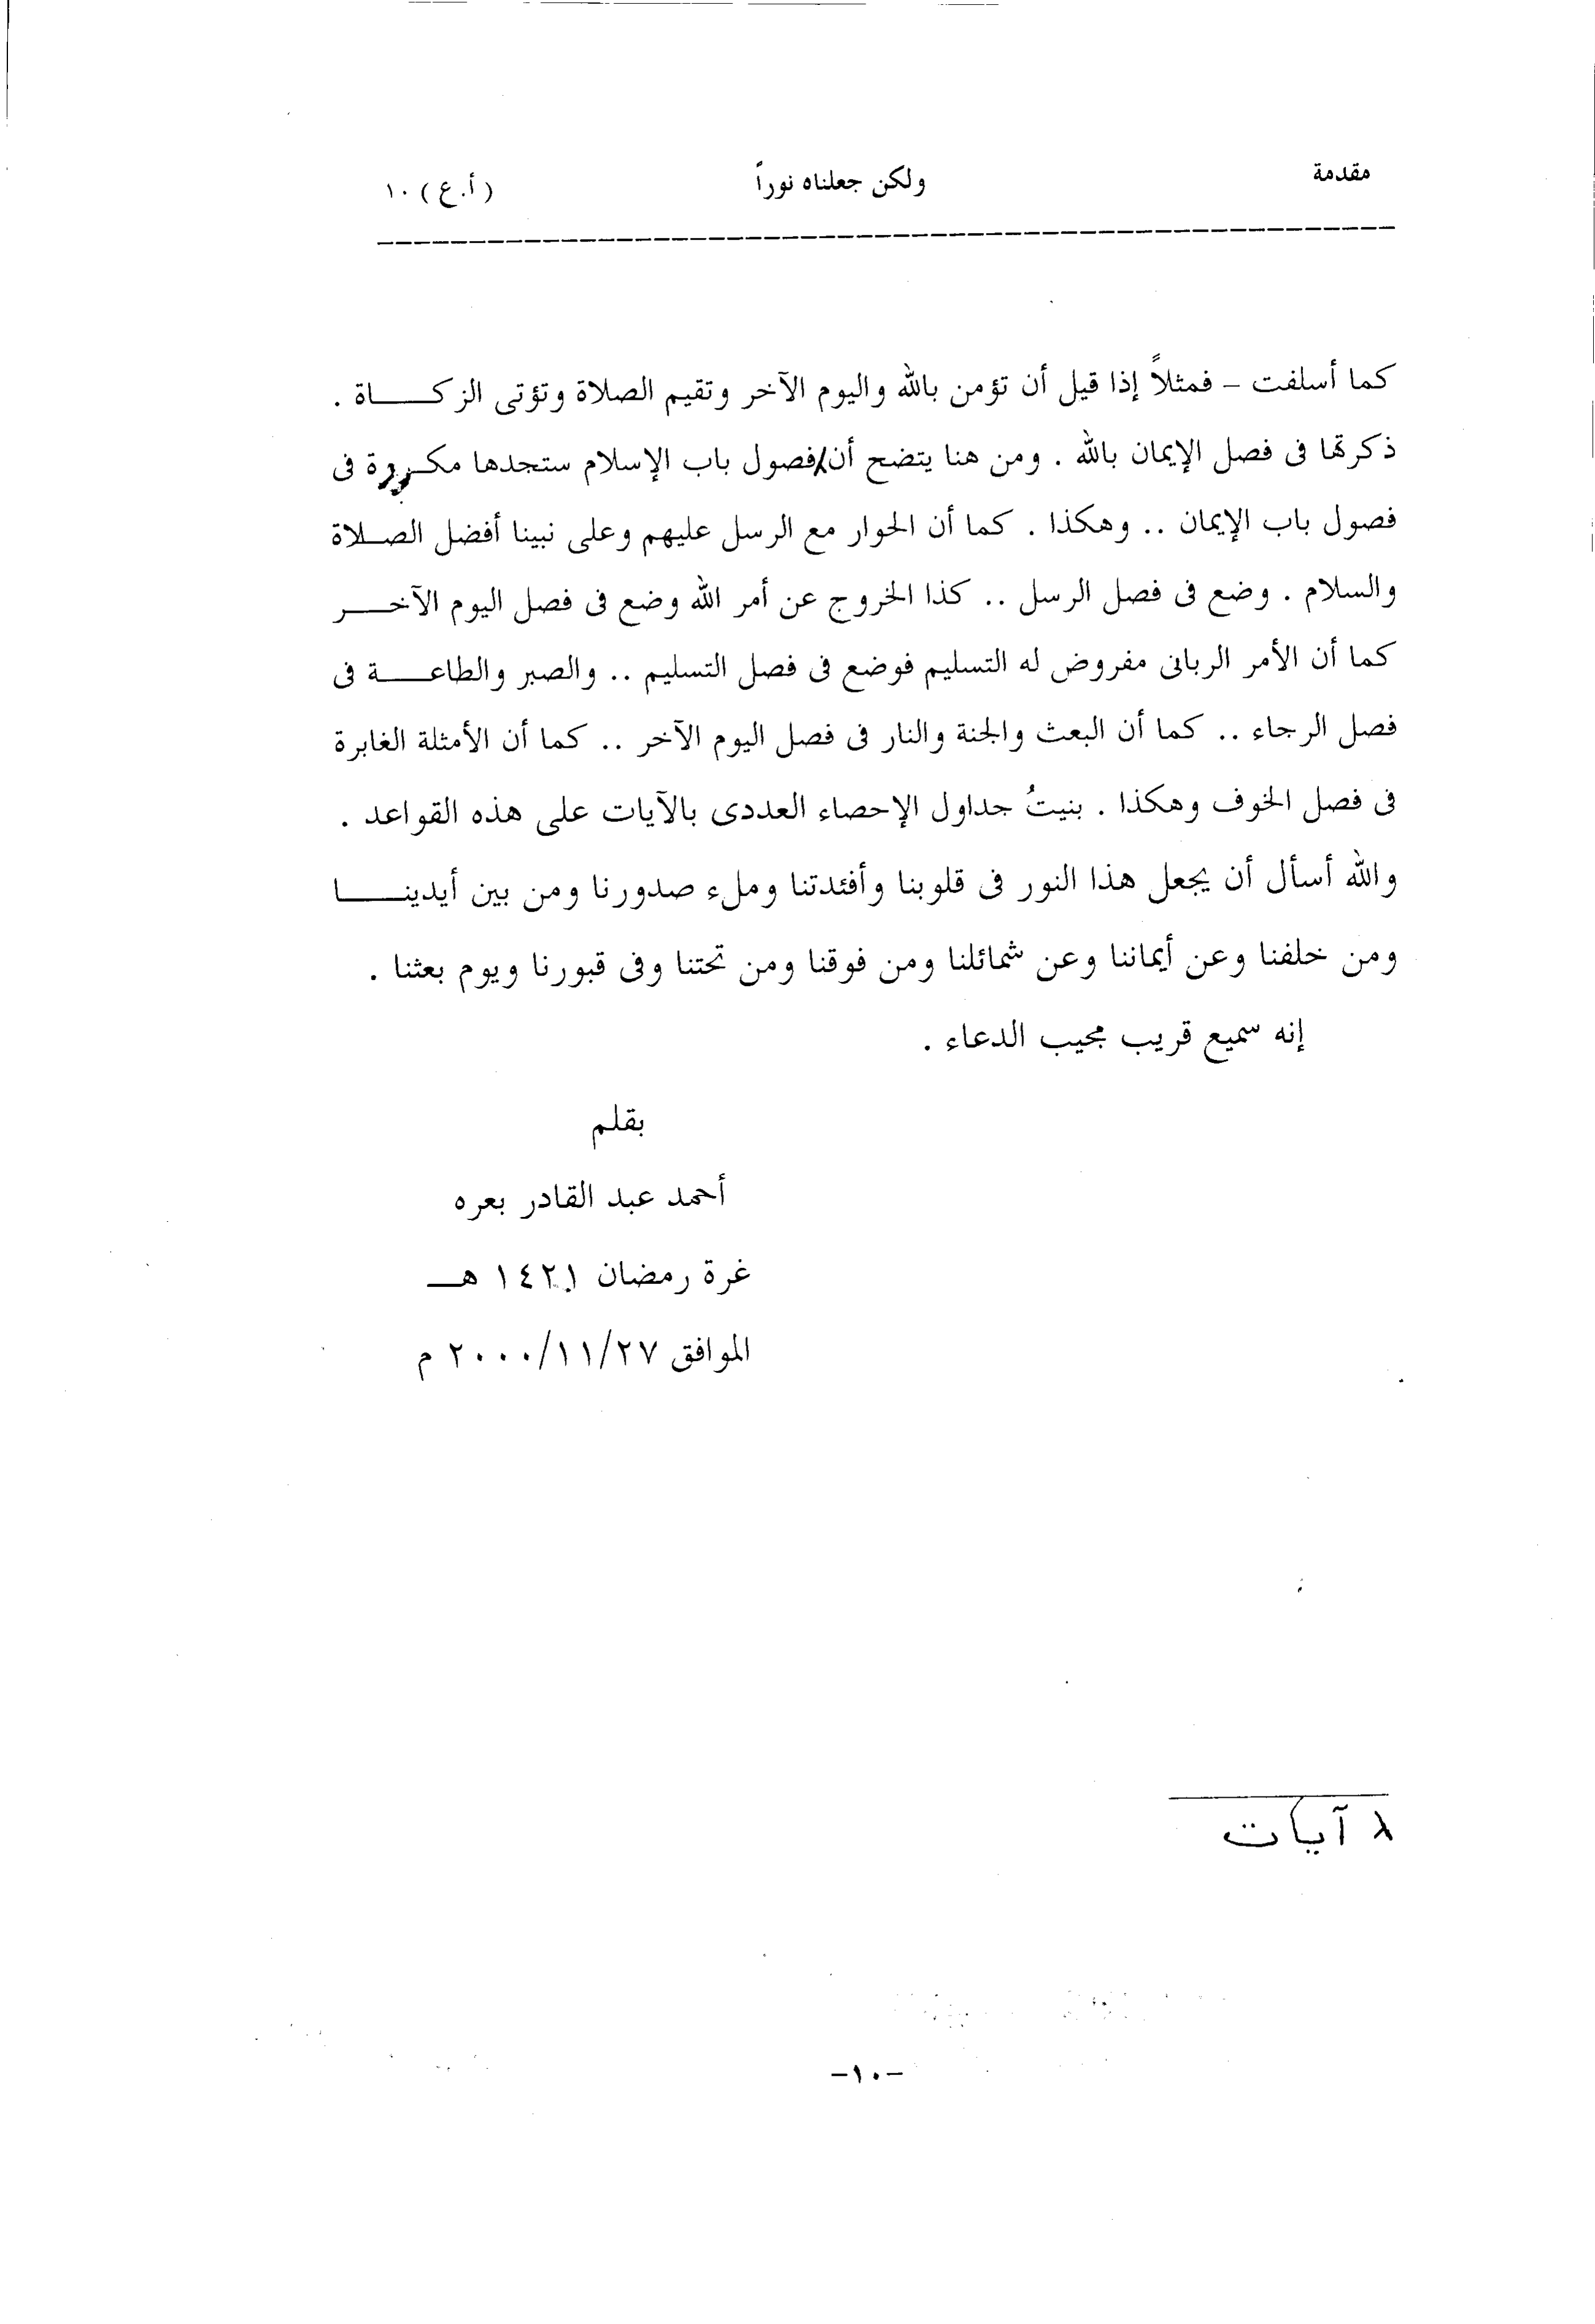 مقدمة ولكن جعلناه نوراً (أ.ع) ١٠
كما أسلفت – فمثلاً إذا قيل أن تؤمن بالله واليوم الآخر وتقيم الصلاة وتؤتى الزكـــــاة .
ذكرتها فى فصل الإيمان بالله . ومن هنا يتضح أن فصول باب الإسلام ستجدها مكــررة فى
فصول باب الإيمان .. وهكذا . كما أن الحوار مع الرسل عليهم وعلى نبينا أفضل الصــلاة
والسلام . وضع فى فصل الرسل .. كذا الخروج عن أمر الله وضع فى فصل اليوم الآخـــر
كما أن الأمر الربانى مفروض له التسليم فوضع فى فصل التسليم .. والصبر والطاعـــــة فى
فصل الرجاء .. كما أن البعث والجنة والنار فى فصل اليوم الآخر .. كما أن الأمثلة الغابرة
فى فصل الخوف وهكذا . بنيتُ جداول الإحصاء العددى بالآيات على هذه القواعد .
والله أسأل أن يجعل هذا النور فى قلوبنا وأفئدتنا وملء صدورنا ومن بين أيدينـــــا
ومن خلفنا وعن أيماننا وعن شمائلنا ومن فوقنا ومن تحتنا وفى قبورنا ويوم بعثنا .
إنه سميع قريب مجيب الدعاء .
بقلم
أحمد عبد القادر بعره
غرة رمضان ١٤٢١ هــ
الموافق ٢٠٠٠/١١/٢٧ م
آيات
-١٠-